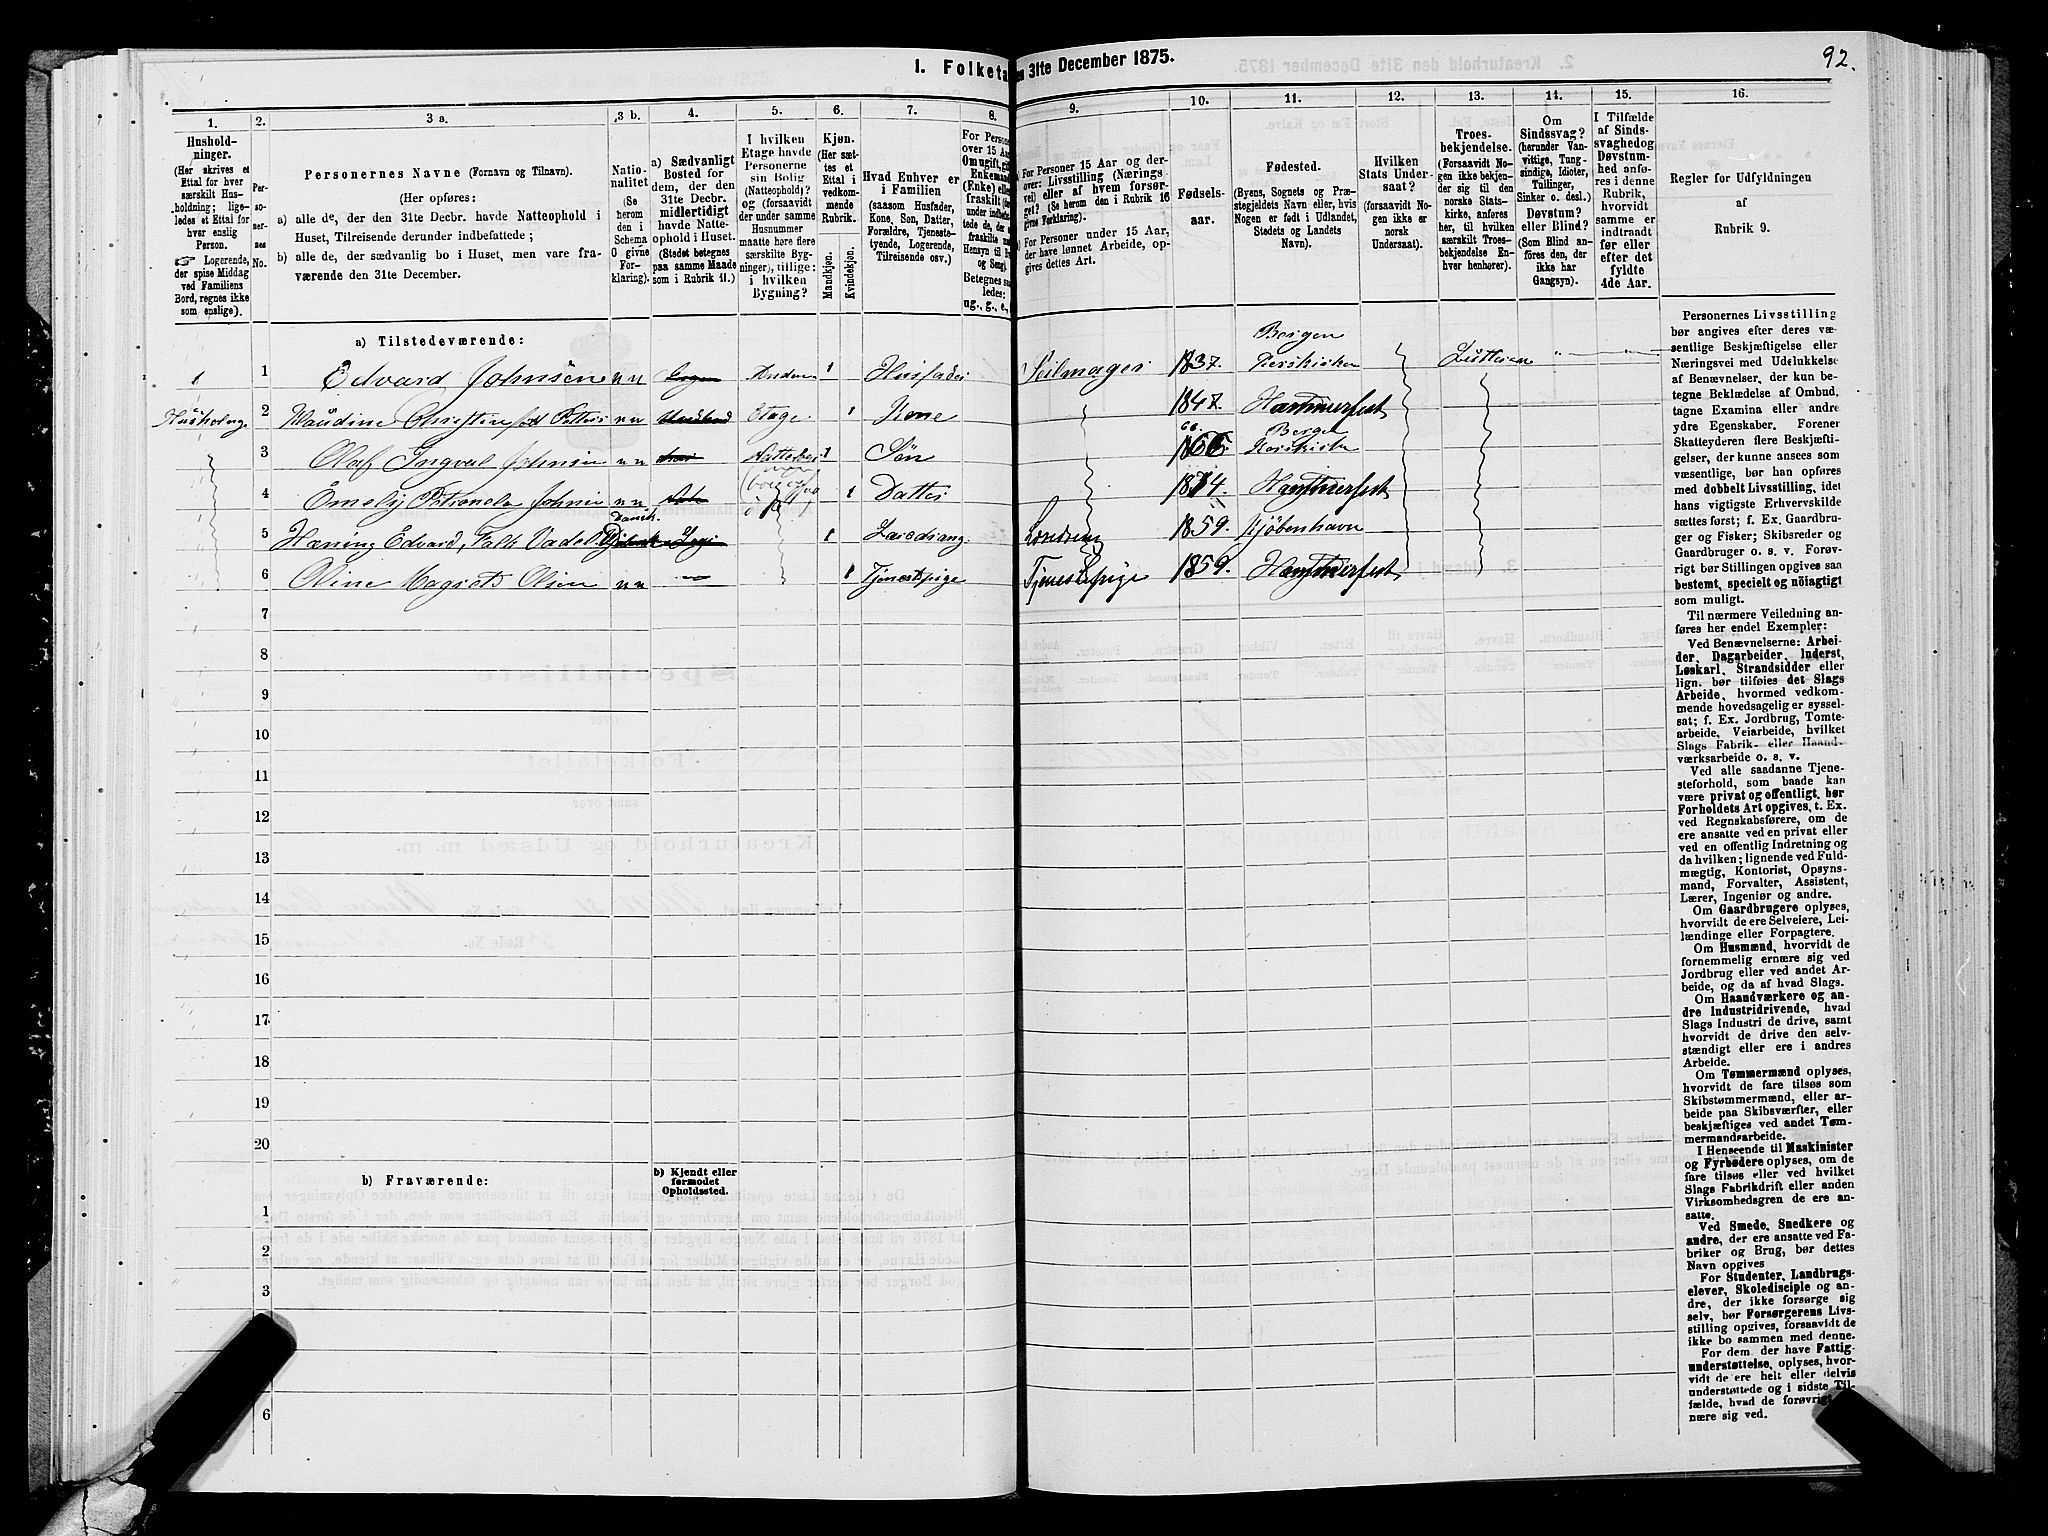 92.
I. Folketa
en 31te December 1875.
1.
2.
3 a.
3 b.
4.
5.
6.
7.
8.
9.
10.
11.
12.
13.
14.
15.
16.
Hushold-
ninger.
(Her skrives et
Ettal for hver
særskilt Hus-
holdning; lige-
ledes et Ettal for
hver enslig
Person.
☞ Logerende,
der spise Middag
ved Familiens
Bord, regnes ikke
som enslige).
Per-
so-
ner-
nes
No.
Personernes Navne (Fornavn og Tilnavn).
(Her opføres:
a) alle de, der den 31te Decbr. havde Natteophold i
Huset, Tilreisende derunder indbefattede;
b) alle de, der sædvanlig bo i Huset, men vare fra-
værende den 31te December.
Natio-
nalitet
(Se
herom
den i
Schema
O givne
For-
klaring).
a) Sædvanligt
Bosted for
dem, der den
31te Decbr.
midlertidigt
havde Natte-
ophold i Huset.
(Stedet betegnes
paa samme Maade
som i Rubrik 11.)
I hvilken
Etage havde
Personerne
sin Bolig
(Natteophold)?
og (forsaavidt
der under samme
Husnummer
maatte høre flere
særskilte Byg-
ninger), tillige:
i hvilken
Bygning?
Kjøn.
(Her sæt-
tes et
Ettal i
vedkom-
mende
Rubrik.
Mandkjøn.
Kvindekjøn.
Hvad Enhver er
i Familien
(saasom Husfader,
Kone, Søn, Datter,
Forældre, Tjeneste-
tyende, Logerende,
Tilreisende osv.)
For Person
over 15 Aar
Om ugift, gif
Enkeman
(Enke) elle
fraskilt (for
under indbefat-
tede de, der er
fraskilte me
Hensyn til B
og Seng).
Betegnes saa
ledes:
ug., g., e.,
a) For Personer 15 Aar og der-
over: Livsstilling (Nærings-
vei) eller af hvem forsør-
get? (Se herom den i Rubrik 16
givne Forklaring).
b) For Personer under 15 Aar,
der have lønnet Arbeide, op-
gives dettes Art.
Fødsels-
aar.
Fødested.
(Byens, Sognets og Præ-
stegjeldets Navn eller, hvis
Nogen er født i Udlandet,
Stedets og Landets
Navn).
Hvilken
Stats Under-
saat?
(forsaavidt No-
gen ikke er
norsk
Undersaat).
Troes-
bekjendelse.
(Forsaavidt No-
gen ikke bekjen-
der sig til den
norske Stats-
kirke, anføres
her, til hvilken
særskilt Troes-
bekjendelse En-
hver henhører).
Om
Sindssvag?
(herunder Van-
vittige, Tung-
sindige, Idioter,
Tullinger,
Sinker o. desl.)
Døvstum?
eller Blind?
(Som Blind an-
føres den, der
ikke har
Gangsyn).
I Tilfælde
af Sinds-
svaghed og
Døvstum-
hed anfø-
res i denne
Rubrik,
hvorvidt
samme er
indtraadt
før eller
efter det
fyldte
4de Aar.
Regler for Udfyldningen
af
Rubrik 9.
a) Tilstedeværende:
1 1 Edvard Johnsen n n Anden 1 Husfader Seilmager 1837. Bergen Korskirken Luthersn
2 Christine n n Etage 1 Kone 1847. Hammerfest
3 Olaf Ingval Johnsen n n 1 Søn 66. Bergen Korskirke
4 Emely Petronela Johnsen n n 1 Datter 1874. Hammerfest
5 Hæning Edvard, Falk Vadel Dansk. 1 Læredreng 1859. Kjøbenhavn
6 Oline Magrete Olsen n n 1 Tjenestpige Tjenestepige 1859. Hammerfest
7
8
9
10
11
12
13
14
15
16
17
18
19
20
b) Fraværende:
b) Kjendt eller
formodet
Opholdssted.
1
2
3
6
Personernes Livsstilling
bør angives efter deres væ-
sentlige Beskjæftigelse eller
Næringsvei med Udelukkelse
af Benævnelser, der kun be-
tegne Beklædelse af Ombud,
tagne Examina eller andre
ydre Egenskaber. Forener
Skatteyderen flere Beskjæfti-
gelser, der kunne ansees som
væsentlige, bør han opføres
med dobbelt Livsstilling, idet
hans vigtigste Erhvervskilde
sættes først; f. Ex. Gaardbru-
ger og Fisker; Skibsreder og
Gaardbruger o. s. v. Forøv-
rigt bør Stillingen opgives saa
bestemt, specielt og nöiagtigt
som muligt.
Til nærmere Veiledning an-
føres her endel Exempler:
Ved Benævnelserne: Arbei-
der, Dagarbeider, Inderst,
Løskarl, Strandsidder eller
lign. bør tilføies det Slags
Arbeide, hvormed vedkom-
mende hovedsagelig er syssel-
sat; f. Ex. Jordbrug, Tomte-
arbeide, Veiarbeide, hvilket
Slags Fabrik- eller Haand-
værksarbeide o. s. v.
Ved alle saadanne Tjene-
steforhold, som baade kan
være privat og offentligt, bør
Forholdets Art opgives, t. Ex.
ved Regnskabsførere, om de
ere ansatte ved en privat eller
ved en offentlig Indretning og
da hvilken; lignende ved Fuld-
mægtig, Kontorist, Opsyns-
mand, Forvalter, Assistent,
Lærer, Ingeniør og andre.
Om Gaardbrugere oplyses,
hvorvidt de ere Selveiere, Lei-
lændinge eller Forpagtere.
Om Husmænd, hvorvidt de
fornemmelig ernære sig ved
Jordbrug eller ved andet Ar-
beide, og da af hvad Slags.
Om Haandværkere og an-
dre Industridrivende, hvad
Slags Industri de drive, samt
hvorvidt de drive den selv-
stændigt eller ere i andres
Arbeide.
Om Tømmermænd oplyses,
hvorvidt de fare tilsøs som
Skibstømmermænd, eller ar-
beide paa Skibsværfter, eller
beskjæftiges ved andet Tøm-
mermandsarbeide.
I Henseende til Maskinister
og Fyrbødere oplyses, om de
fare tilsøs eller ved hvilket
Slags Fabrikdrift eller anden
Virksomhedsgren de ere an-
satte.
Ved Smede, Snedkere og
andre, der ere ansatte ved Fa-
briker og Brug, bør dettes
Navn opgives
For Studenter, Landbrugs-
elever, Skoledisciple og an-
dre, der ikke forsørge sig
selv, bør Forsørgerens Livs-
stilling opgives, forsaavidt de
ikke bo sammen med denne.
For dem, der have Fattig-
understøttelse, oplyses, hvor-
vidt de ere helt eller delvis
understøttede og i sidste Til-
fælde, hvad de forøvrigt
nære sig ved.